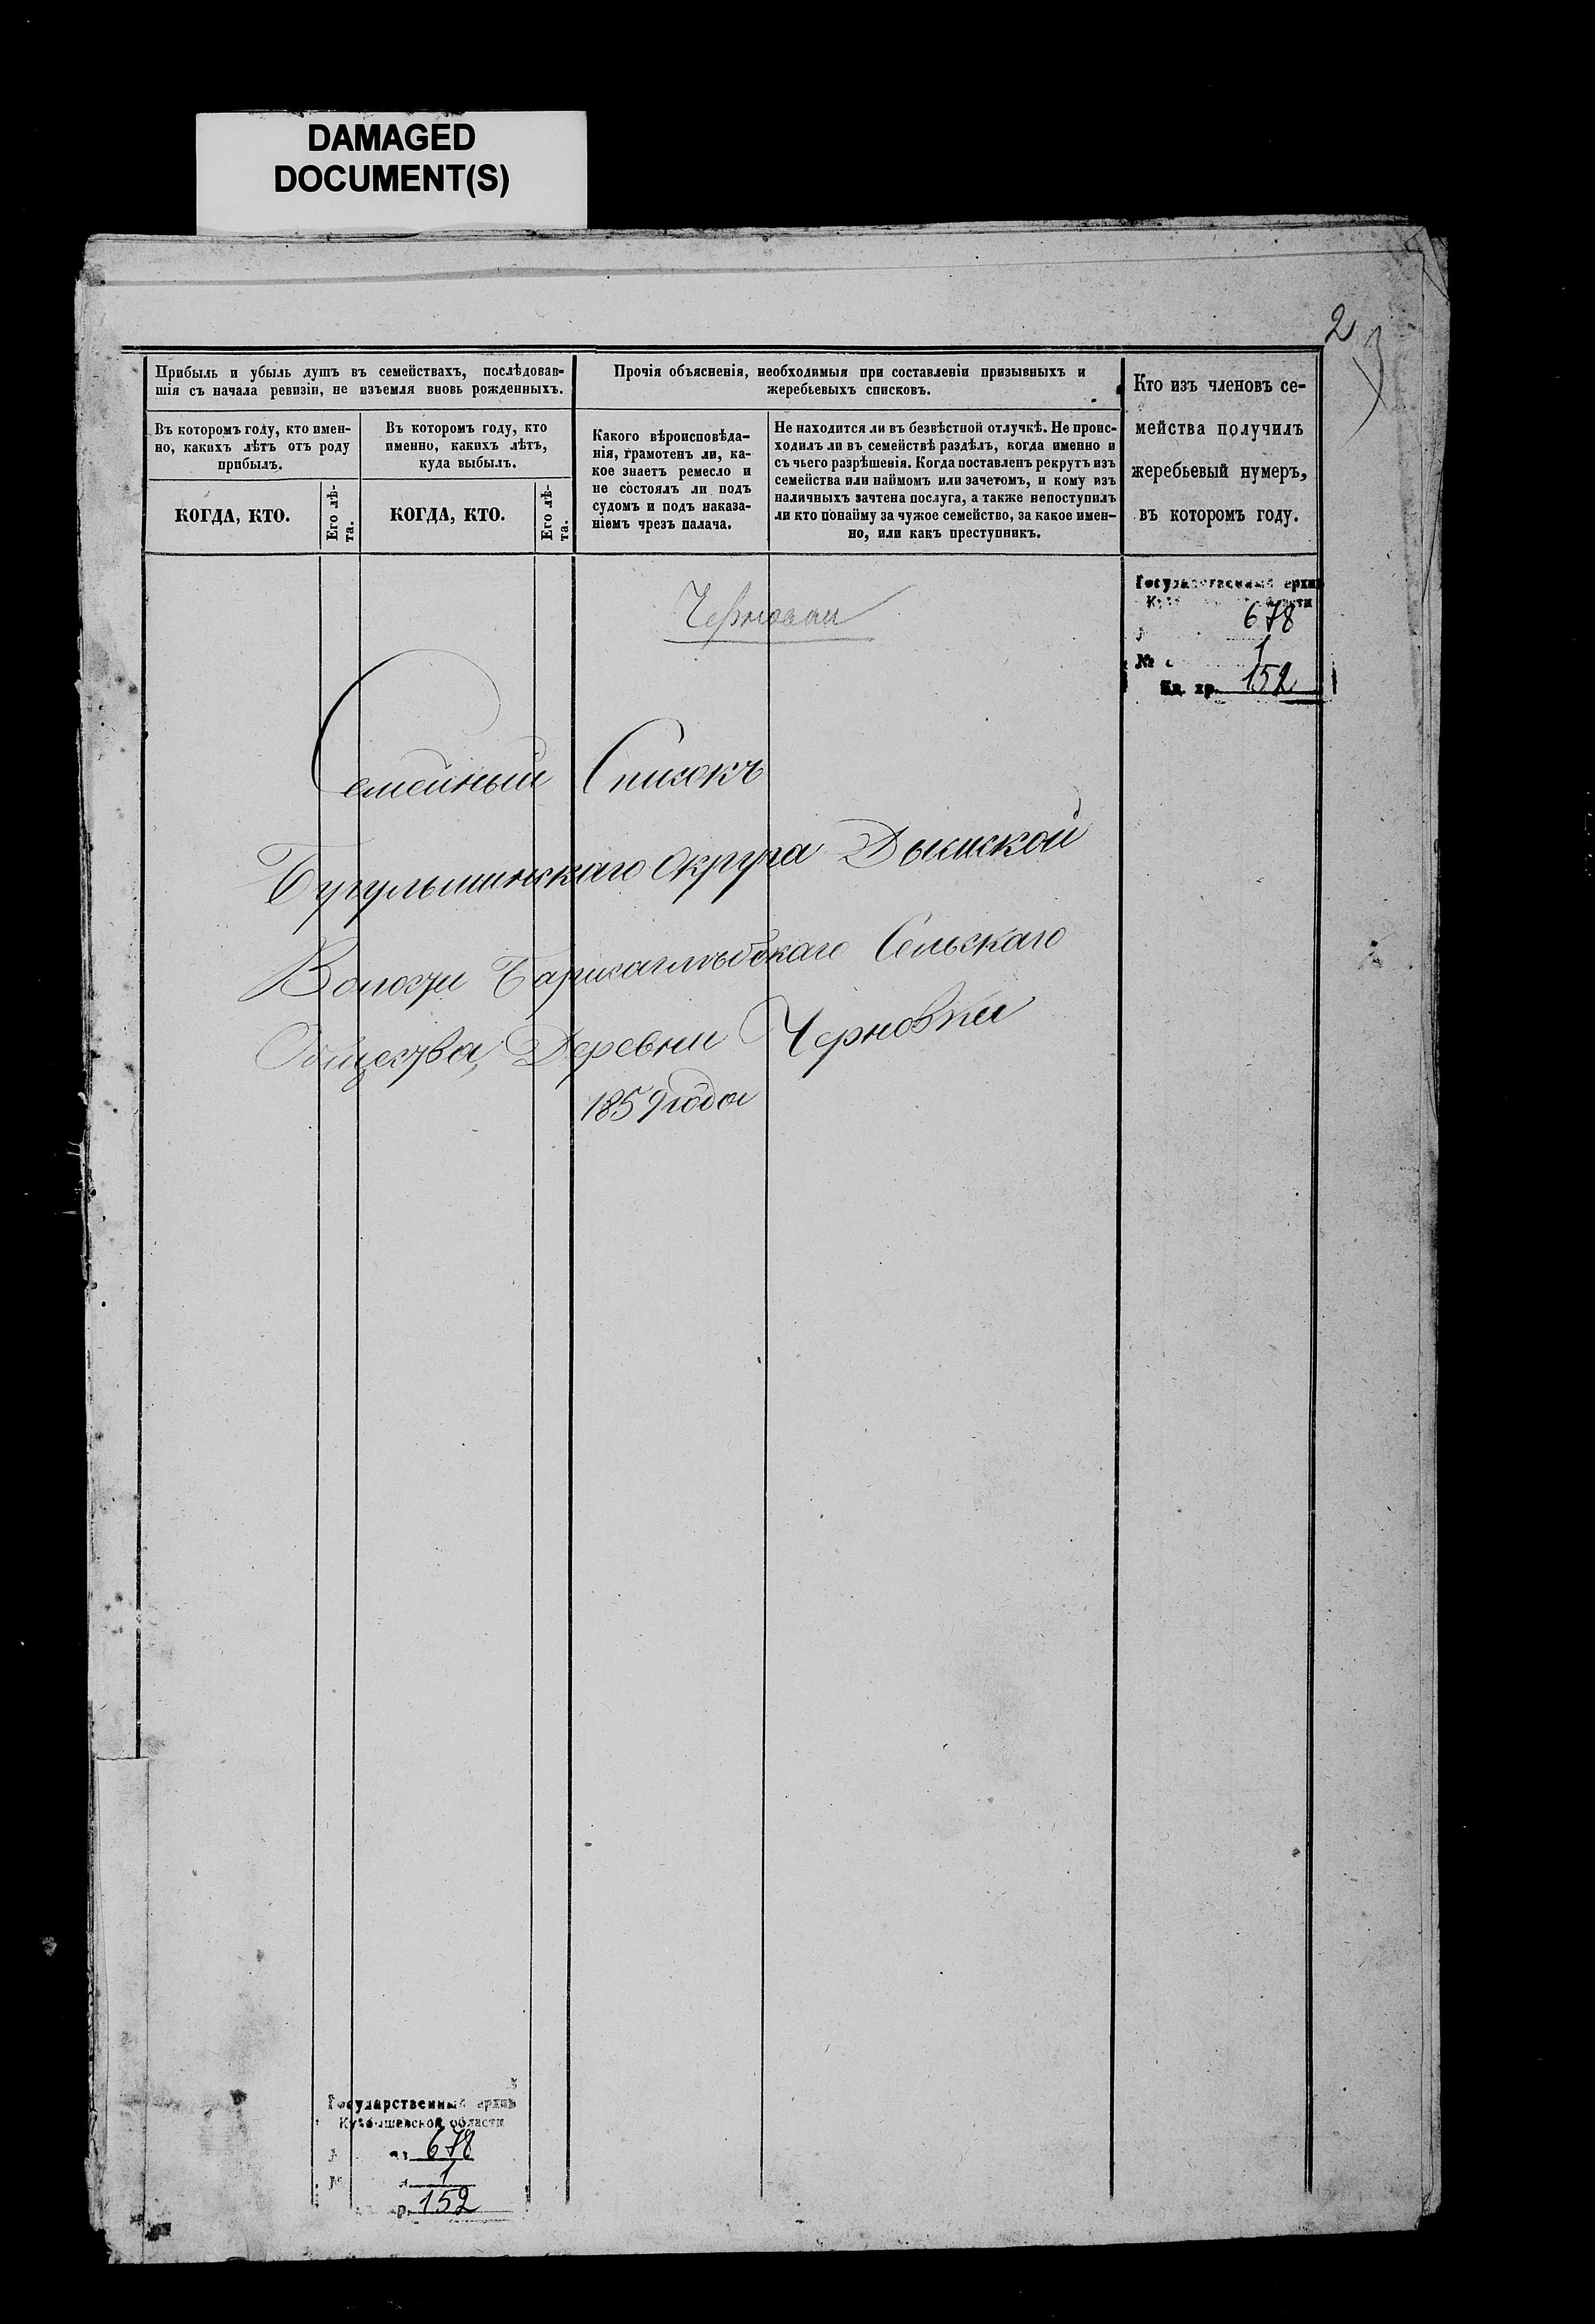 DAMAGED
DOCUMENT(S)
2
Прибыль и убыль душъ въ семействахъ, послѣдовав-
шія съ начала ревизіи, не изъемля вновь рожденныхъ.
Прочія объясненія, необходимыя при составленіи призывныхъ и
жеребьевыхъ списковъ.
Кто изъ членовъ се-
мейства получилъ
жеребьевый нумеръ,
въ которомъ году.
Въ которомъ году, кто имен-
но, какихъ лѣтъ отъ роду
прибылъ.
Въ которомъ году, кто
именно, какихъ лѣтъ,
куда выбылъ.
Какого вѣроисповѣда-
нія, грамотенъ ли, ка-
кое знаетъ ремесло и
не состоялъ ли подъ
судомъ и подъ наказа-
ніемъ чрезъ палача.
Не находится ли въ безвѣстной отлучкѣ. Не проис-
ходилъ ли въ семействѣ раздѣлъ, когда именно и
съ чьего разрѣшенія. Когда поставленъ рекрутъ изъ
семейства или наймомъ или зачетомъ, и кому изъ
наличныхъ зачтена послуга, а также непоступилъ
ли кто понайму за чужое семейство, за какое имен-
но, или какъ преступникъ.
КОГДА, КТО.
Его лѣ-
та.
КОГДА, КТО.
Его лѣ-
та.
Государственный архив
678
№ 1
Ед. хр. 152
Семейный Списокъ
Бугульминскаго Округа Дымской
Волости Сельскаго
Общества, Деревни Черновки
1859 года
Государственный архив
Куйбышевской области
678
1
152